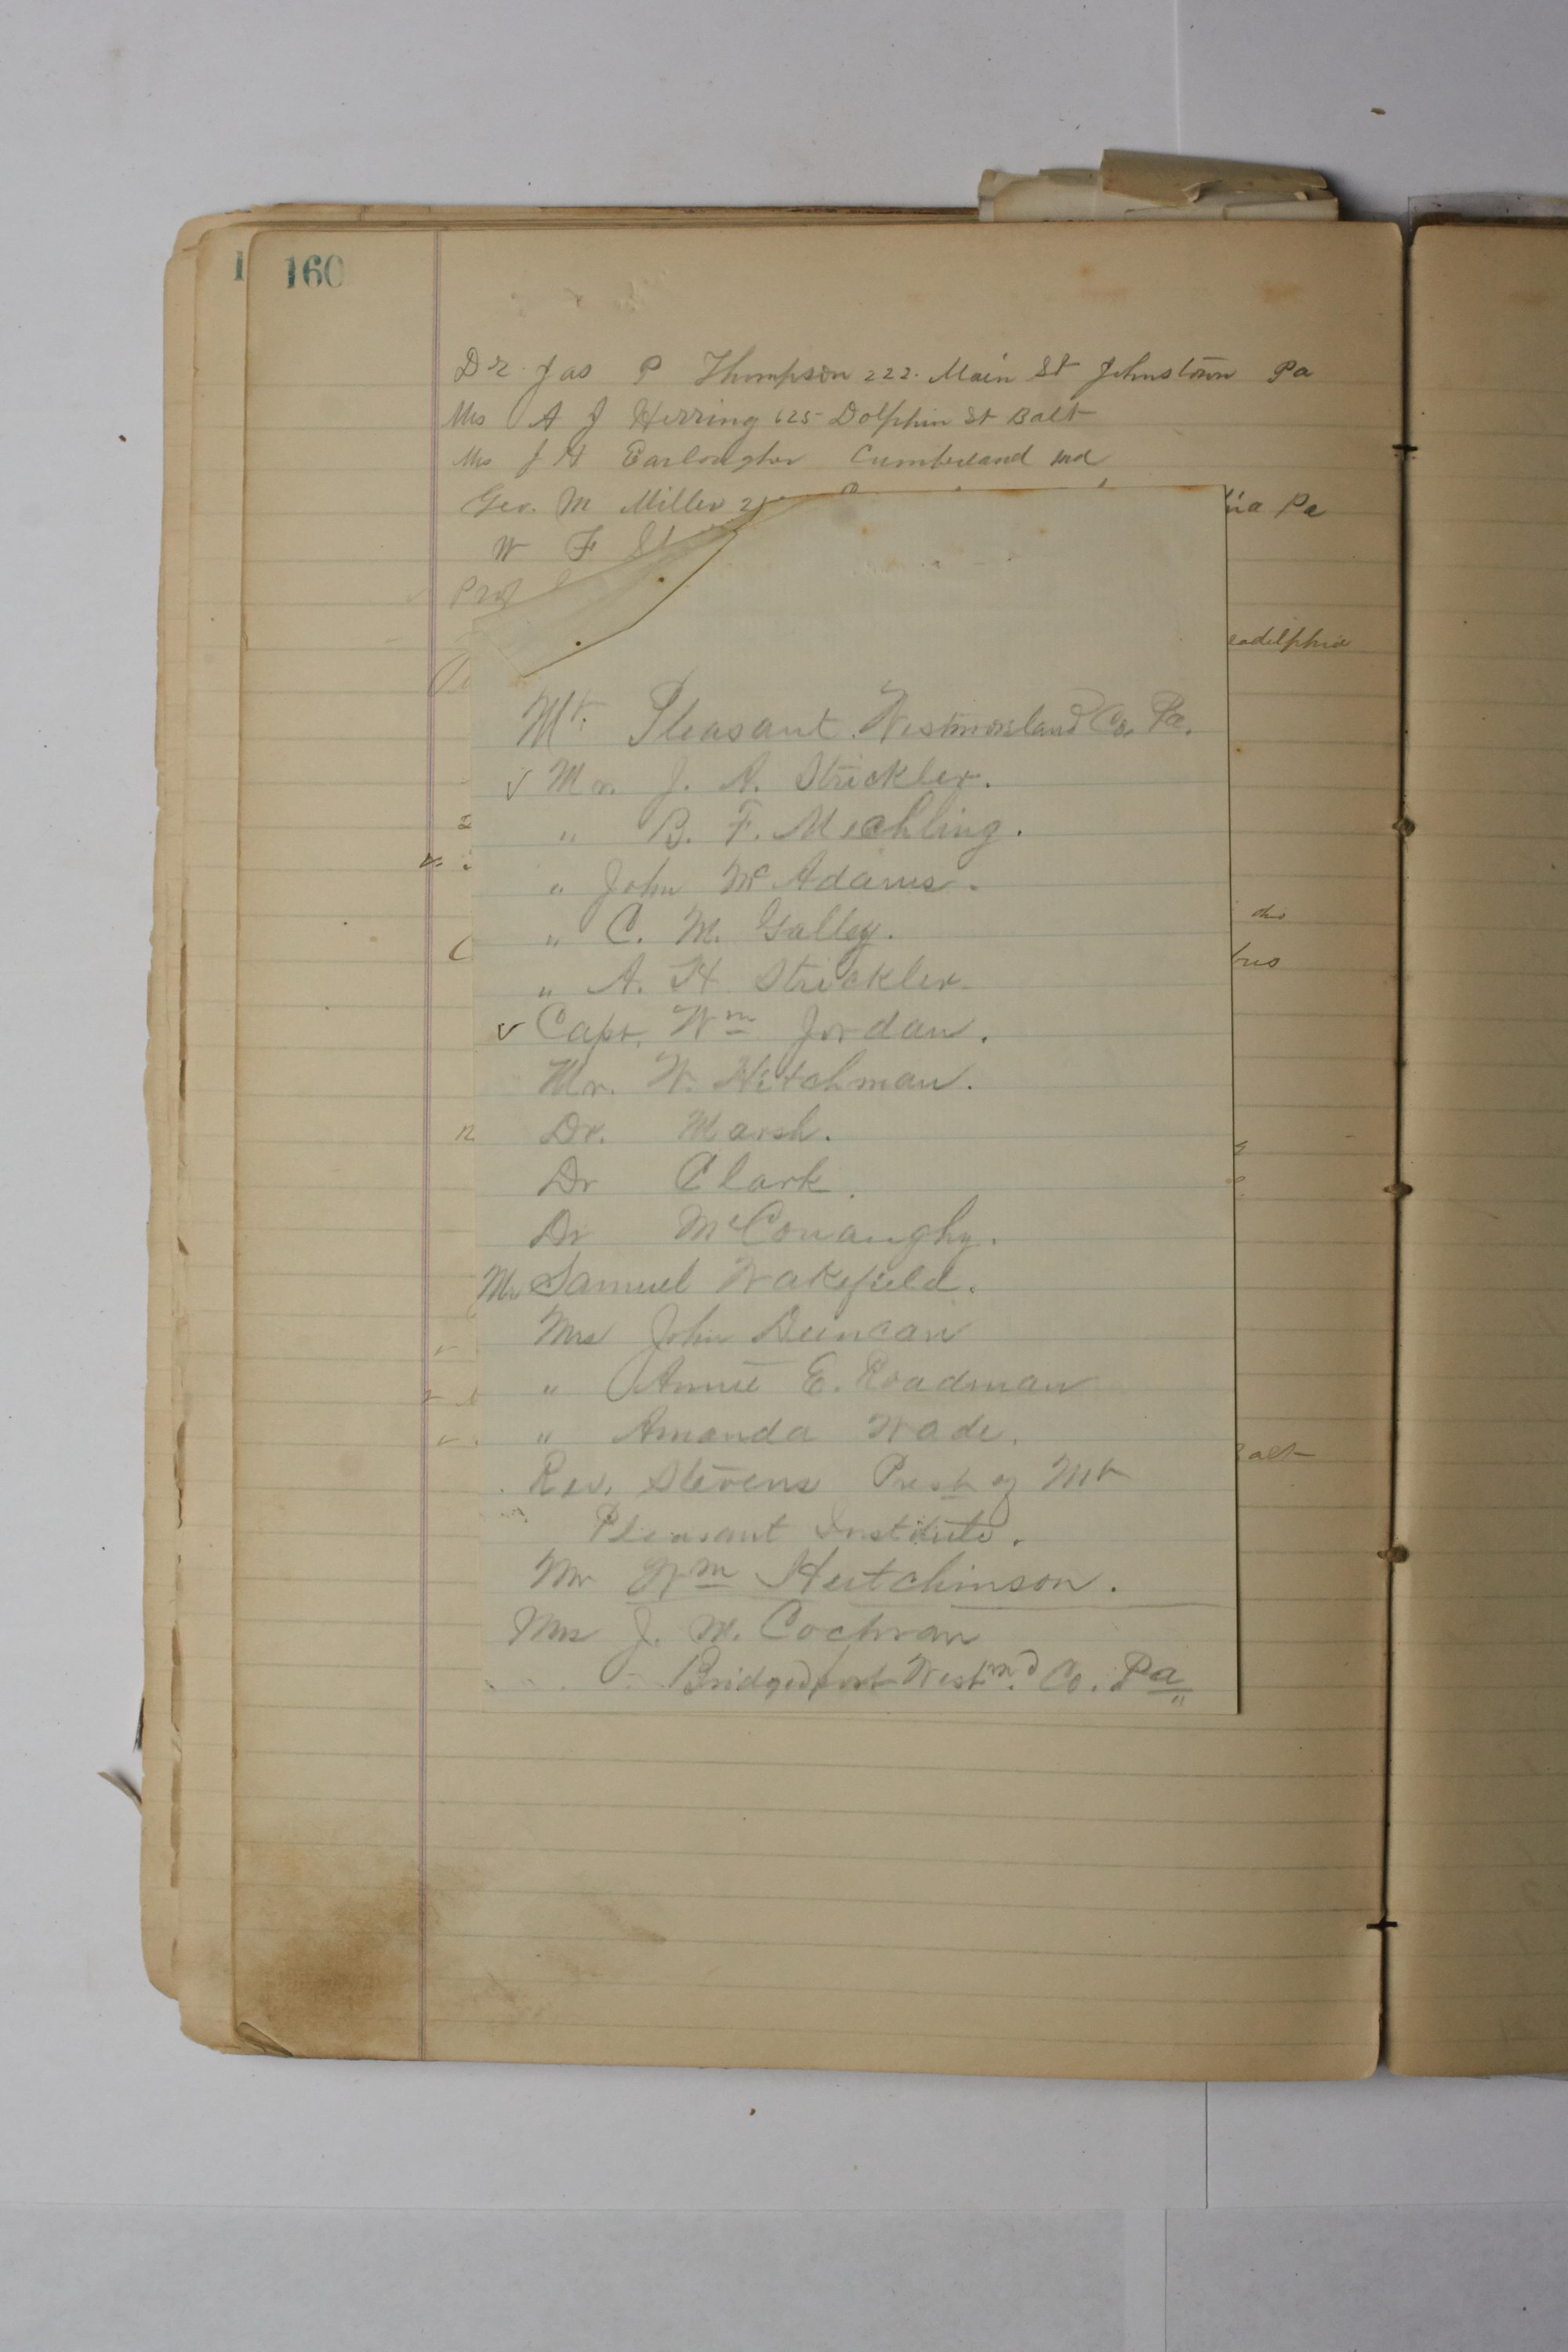 160
Dr. Jas P Thompson 222. Main St Johnstown Pa
Mrs A J Herring 625 Dolphin St Balt
Mrs J H Earlougher Cumberland Md
Geo. M Miller 2
ia Pa
W F
Prof
adelphia
Mt. Pleasant. Westmoreland Co. Pa.
✓ Mr. J. A. Strickler.
" B. F. Mechling.
" John McAdams.
" C. M. Galley.
" A. H. Strickler.
✓ Capt. Wm Jordan.
Mr. W. Hitchman.
Dr. Marsh.
Dr Clark.
Dr McConaughy.
Mr Samuel Wakefield.
Mrs John Duncan
" Annie E. Roadman
" Amanda Wade.
Rev. Stevens Prest of Mt
Pleasant Institute.
Mr Wm Hutchinson.
Mrs J. M. Cochran
Bridgeport Westmd Co. Pa